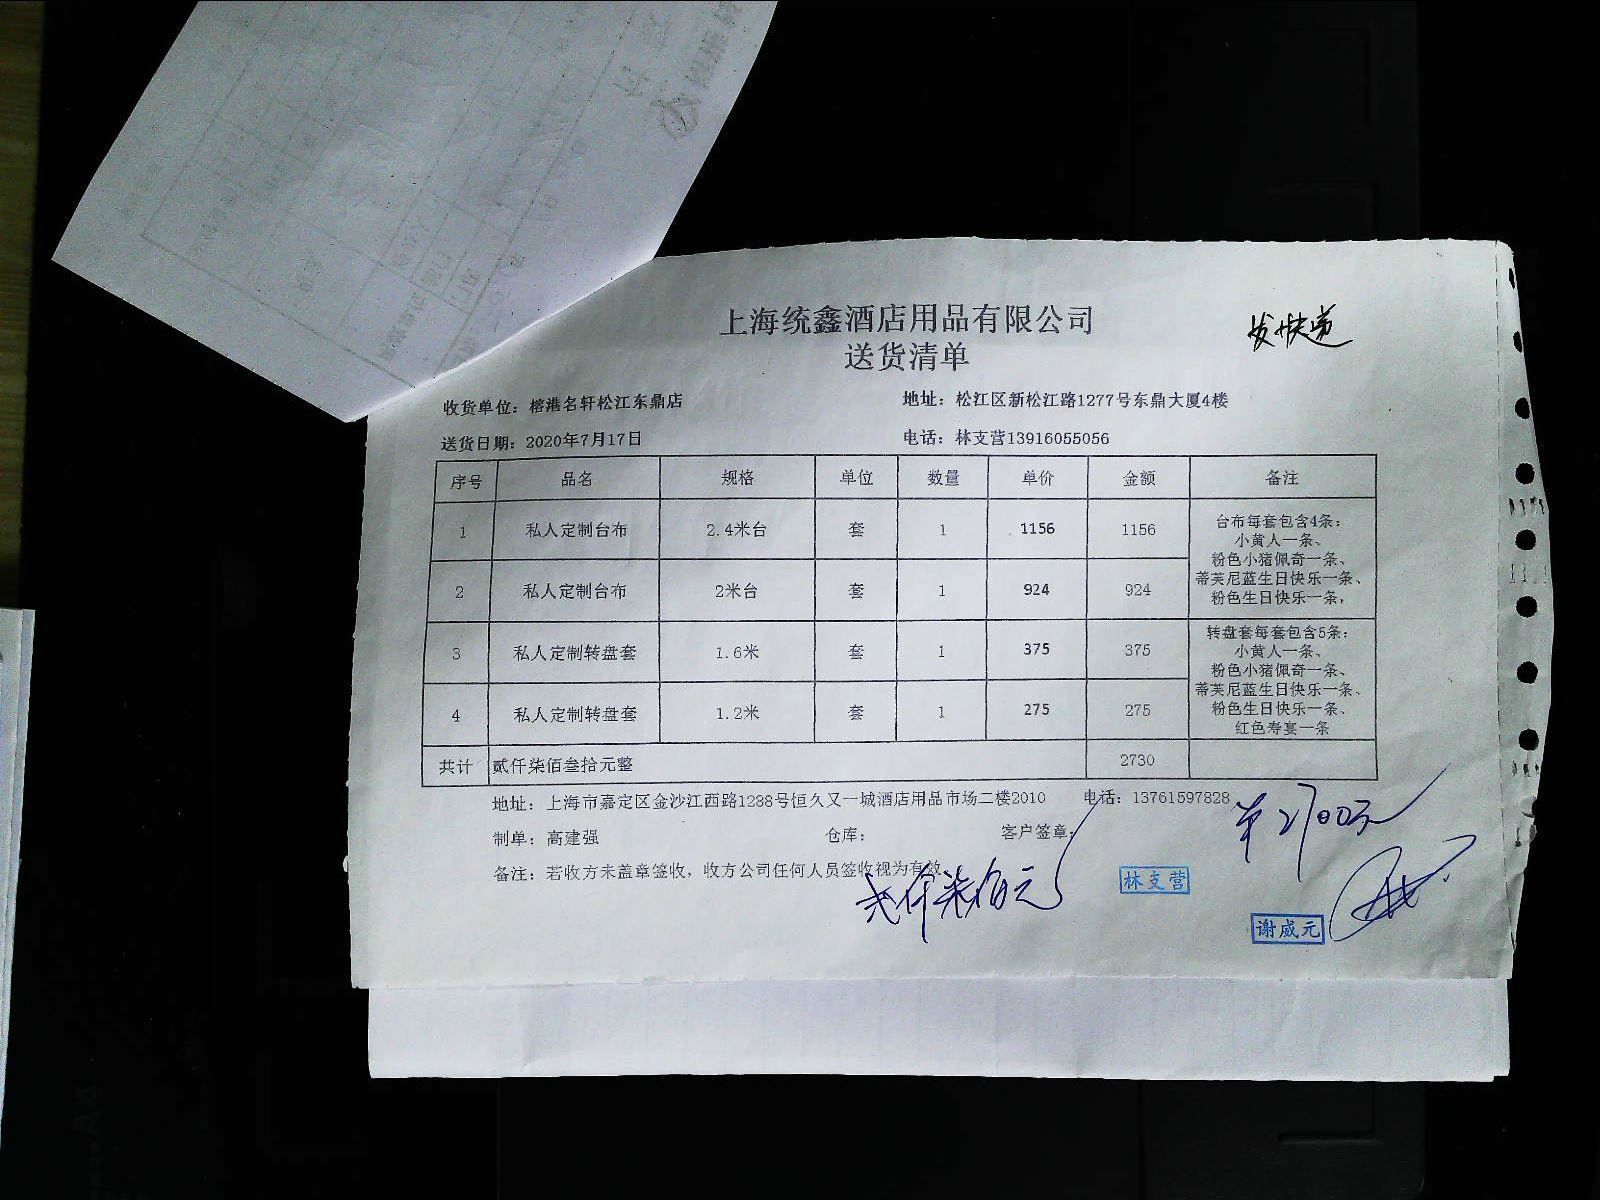 上海统鑫酒店用品有限公司
送货清单
发快递
收货单位：榕港名轩松江东鼎店 地址：松江区新松江路1277号东鼎大厦4楼
送货日期：2020年7月17日 电话：林支营13916055056
序号 品名 规格 单位 数量 单价 金额 备注
1 私人定制台布 2.4米台 套 1 1156 1156
2 私人定制台布 2米台 套 1 924 924
台布每套包含4条：
小黄人一条、
粉色小猪佩奇一条、
蒂芙尼蓝生日快乐一条、
粉色生日快乐一条，
3 私人定制转盘套 1.6米 套 1 375 375
4 私人定制转盘套 1.2米 套 1 275 275
转盘套每套包含5条：
小黄人一条、
粉色小猪佩奇一条、
蒂芙尼蓝生日快乐一条、
粉色生日快乐一条、
红色寿宴一条
共计 贰仟柒佰叁拾元整 2730
地址：上海市嘉定区金沙江西路1288号恒久又一城酒店用品市场二楼2010 电话：13761597828
制单：高建强 仓库： 客户签章：
2700元
备注：若收方未盖章签收，收方公司任何人员签收视为有效
贰仟柒佰元
林支营
谢威元